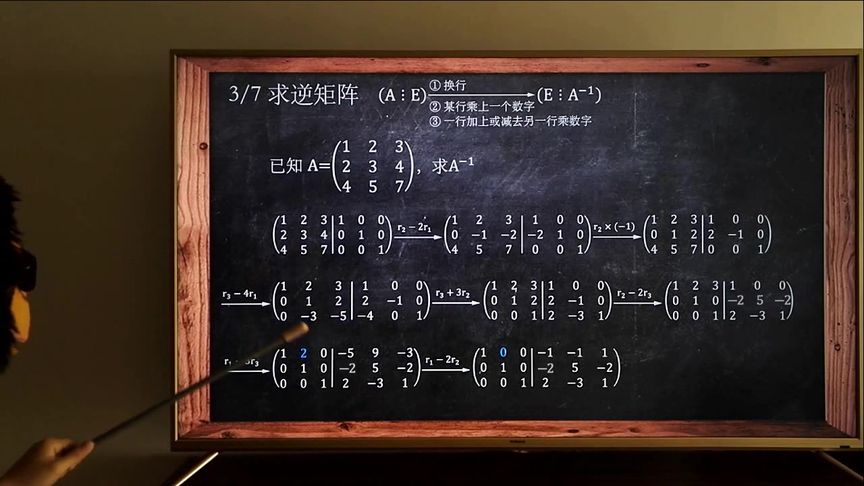 3/7 求逆矩阵 (A⋮E) ① 换行 ② 某行乘上一个数字 ③ 一行加上或减去另一行乘数字 → (E⋮A⁻¹)
已知 A= (1 2 3; 2 3 4; 4 5 7), 求A⁻¹
(1 2 3 | 1 0 0; 2 3 4 | 0 1 0; 4 5 7 | 0 0 1) r₂ − 2r₁ → (1 2 3 | 1 0 0; 0 −1 −2 | −2 1 0; 4 5 7 | 0 0 1) r₂ × (−1) → (1 2 3 | 1 0 0; 0 1 2 | 2 −1 0; 4 5 7 | 0 0 1)
r₃ − 4r₁ → (1 2 3 | 1 0 0; 0 1 2 | 2 −1 0; 0 −3 −5 | −4 0 1) r₃ + 3r₂ → (1 2 3 | 1 0 0; 0 1 2 | 2 −1 0; 0 0 1 | 2 −3 1) r₂ − 2r₃ → (1 2 3 | 1 0 0; 0 1 0 | −2 5 −2; 0 0 1 | 2 −3 1)
→ (1 2 0 | −5 9 −3; 0 1 0 | −2 5 −2; 0 0 1 | 2 −3 1) r₁ − 2r₂ → (1 0 0 | −1 −1 1; 0 1 0 | −2 5 −2; 0 0 1 | 2 −3 1)